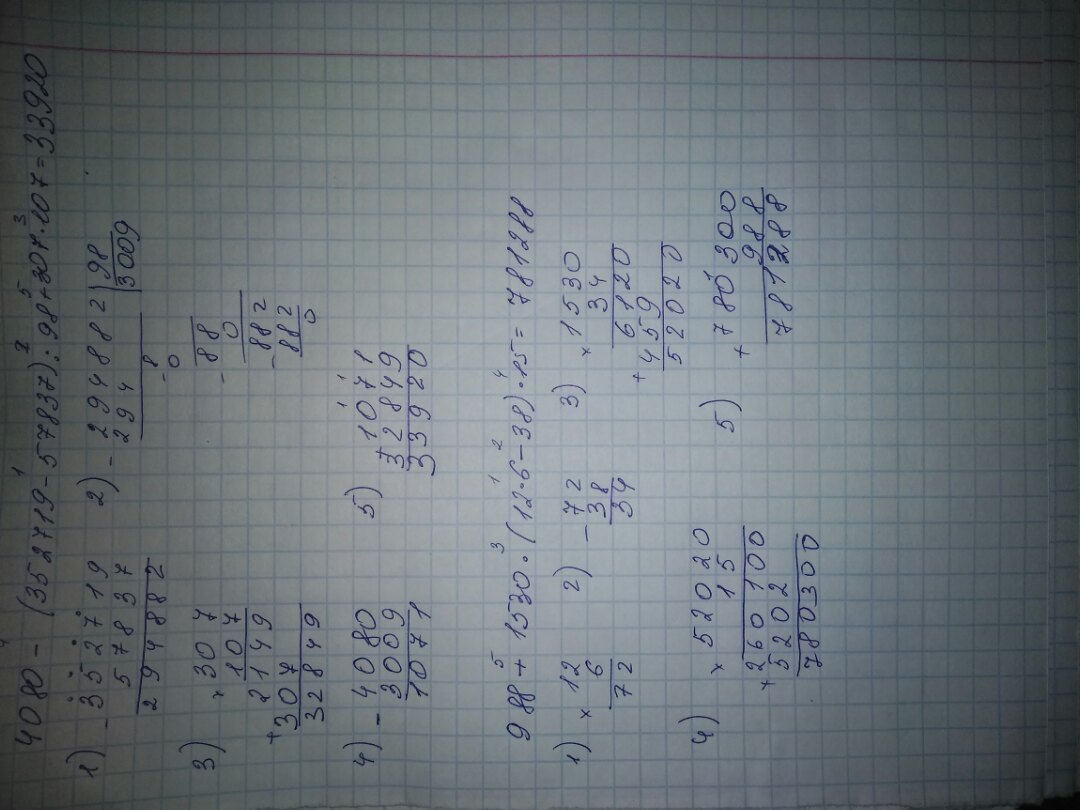 4080 - (352719 - 57837) : 98 + 307 · 107 = 33920
4 1 2 5 3
1) - 352719
57837
294882
2) - 294882 | 98
294 3009
- 8
0
- 88
0
- 882
882
0
3) × 307
107
+ 2149
307
32849
4) - 4080
3009
1071
5) + 1071
32849
33920
988 + 1530 · (12 · 6 - 38) · 15 = 781288
5 3 1 2 4
1) × 12
6
72
2) - 72
38
34
3) × 1530
34
+ 6120
459
52020
4) × 52020
15
+ 260100
5202
780300
5) + 780300
988
781288